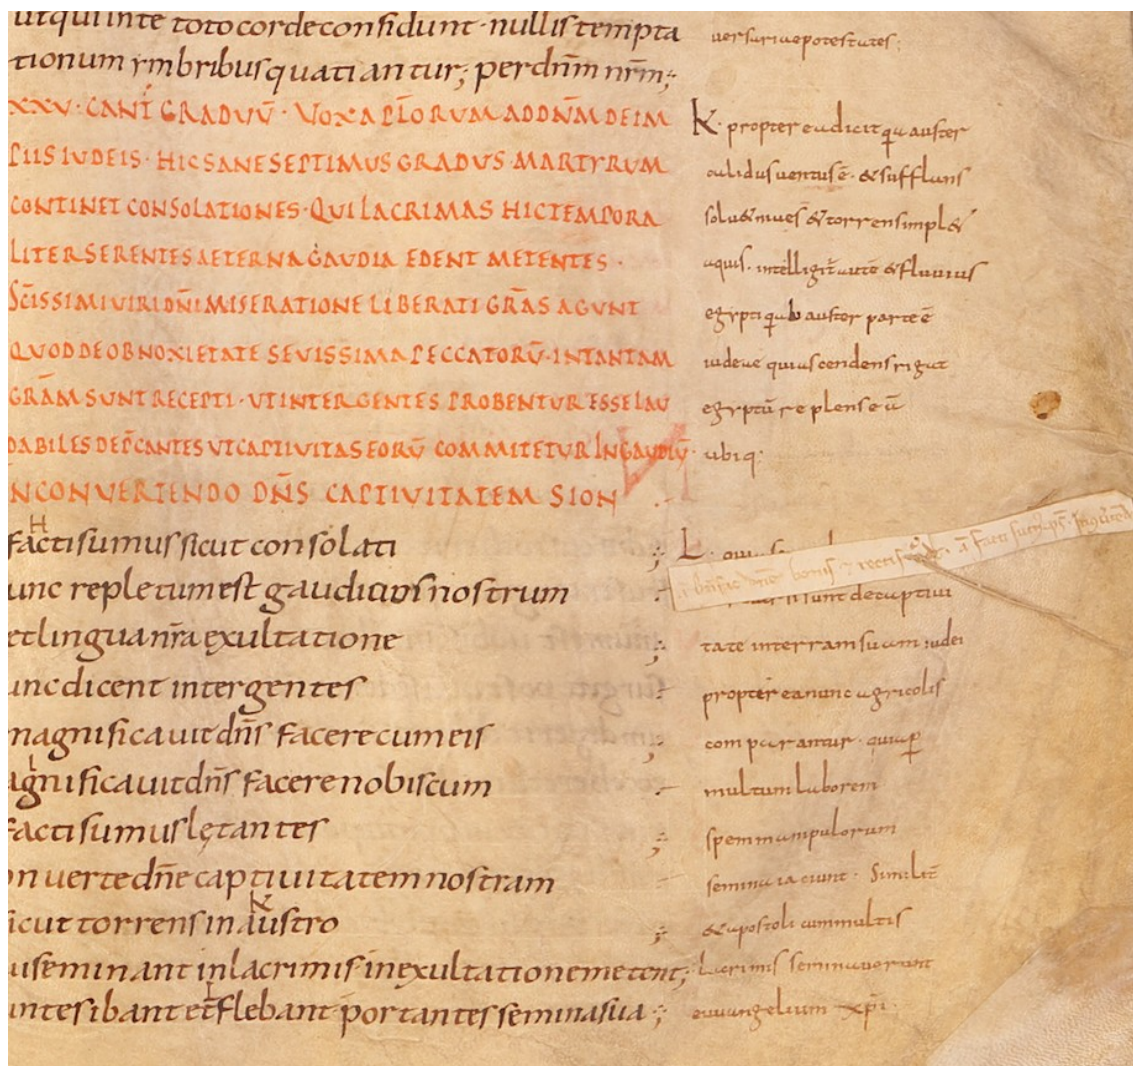 utqui inte toto corde confidunt · nullis tempta
tionum ymbribus quatiantur; per dn̄m nr̄m;
XXV · CANT̄ GRADUU̅ · VOX APL̅ORUM AD DN̅M DE IM
PIIS IUDEIS · HIC SANE SEPTIMUS GRADUS MARTYRUM
CONTINET CONSOLATIONES · QUI LACRIMAS HIC TEMPORA
LITER SERENTES AETERNA GAUDIA EDENT METENTES ·
SC̅ISSIMI VIRI DN̅I MISERATIONE LIBERATI GR̅AS AGUNT
QUOD DE OBNOXIETATE SEVISSIMA PECCATORU̅ · IN TANTAM
GR̅AM SUNT RECEPTI · UT INTER GENTES PROBENTUR ESSE LAU
DABILES DEP̅CANTES UT CAPTIVITAS EORU̅ COMMITETUR IN GAUDIU̅ ·
N CONVERTENDO DN̅S CAPTIVITATEM SION
H
facti sumus sicut consolati
unc repletum est gaudio os nostrum
et lingua nr̄a exultatione
unc dicent inter gentes
magnificavit dn̄s facere cum eis
agnificavit dn̄s facere nobiscum
facti sumus lętantes
onverte dn̄e captivitatem nostram
K
sicut torrens in austro
ui seminant in lacrimis · in exultatione metent;
untes ibant et flebant · portantes semina sua ;
versariae potestates;
K · propterea dicit quia auster
calidus ventus ē · & sufflans
solu& nives & torrens impl&
aquis · intelligit̄ aut̄e & fluvius
egypti qui ab auster parte ē
iudeae qui ascendens rigat
egyptū replens eū
ubiq:
L · quia
sunt de captivi
tate in terram suam iudei
propterea nunc agricolis
comparantur · quia p̄
multum laborem
spem manipulorum
semina iaciunt · Similit̄
& apostoli cum multis
lacrimis seminaverunt
evangelium xp̄i ·
bonis & rectis facti sum